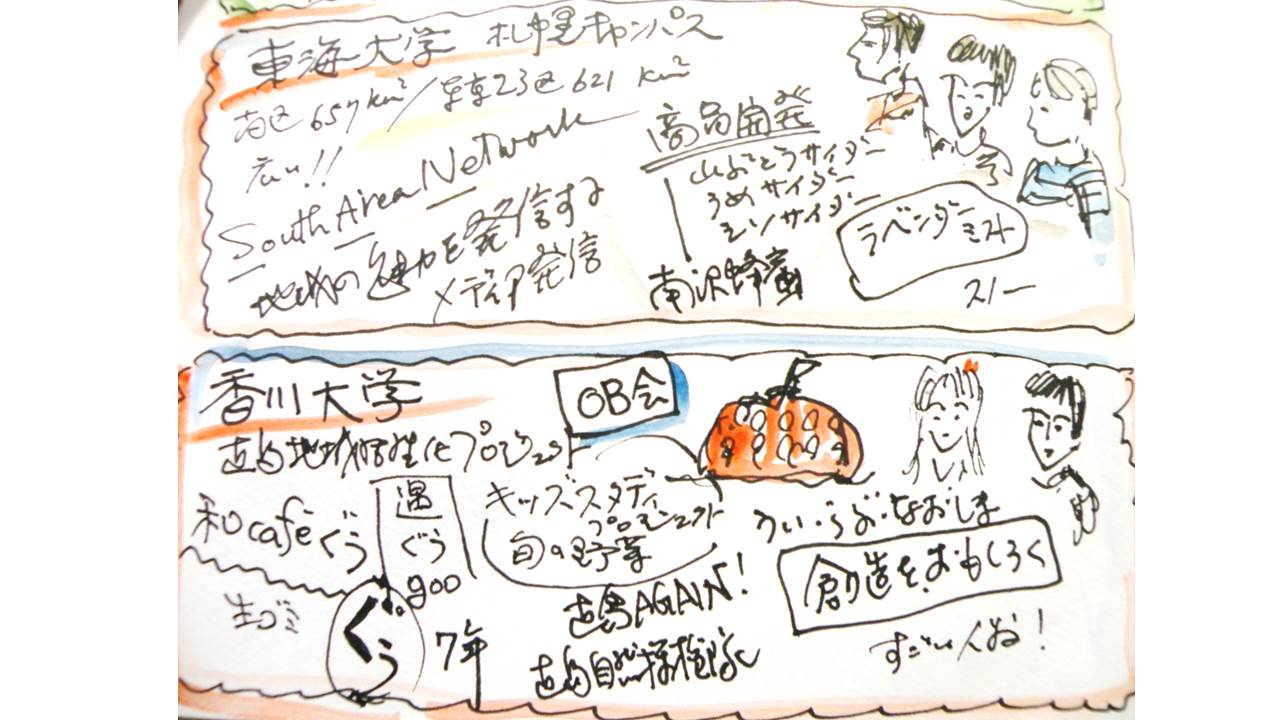 東海大学 札幌キャンパス
南区657km²/東京23区621km²
広い!!
South Area Network
地域の魅力を発信する
メディア発信
商品開発
山ぶどうサイダー
うめサイダー
シソサイダー
南沢蜂蜜
ラベンダーミスト
スノー
香川大学
直島地域活性化プロジェクト
OB会
和caféぐう
遇
ぐう
goo
キッズスタディ
プロジェクト
旬の野菜
生ゴミ
ぐぅ
7年
直島AGAIN!
直島自然探検隊
うぃ・らぶ・なおしま
創造をおもしろく
すごい人お!